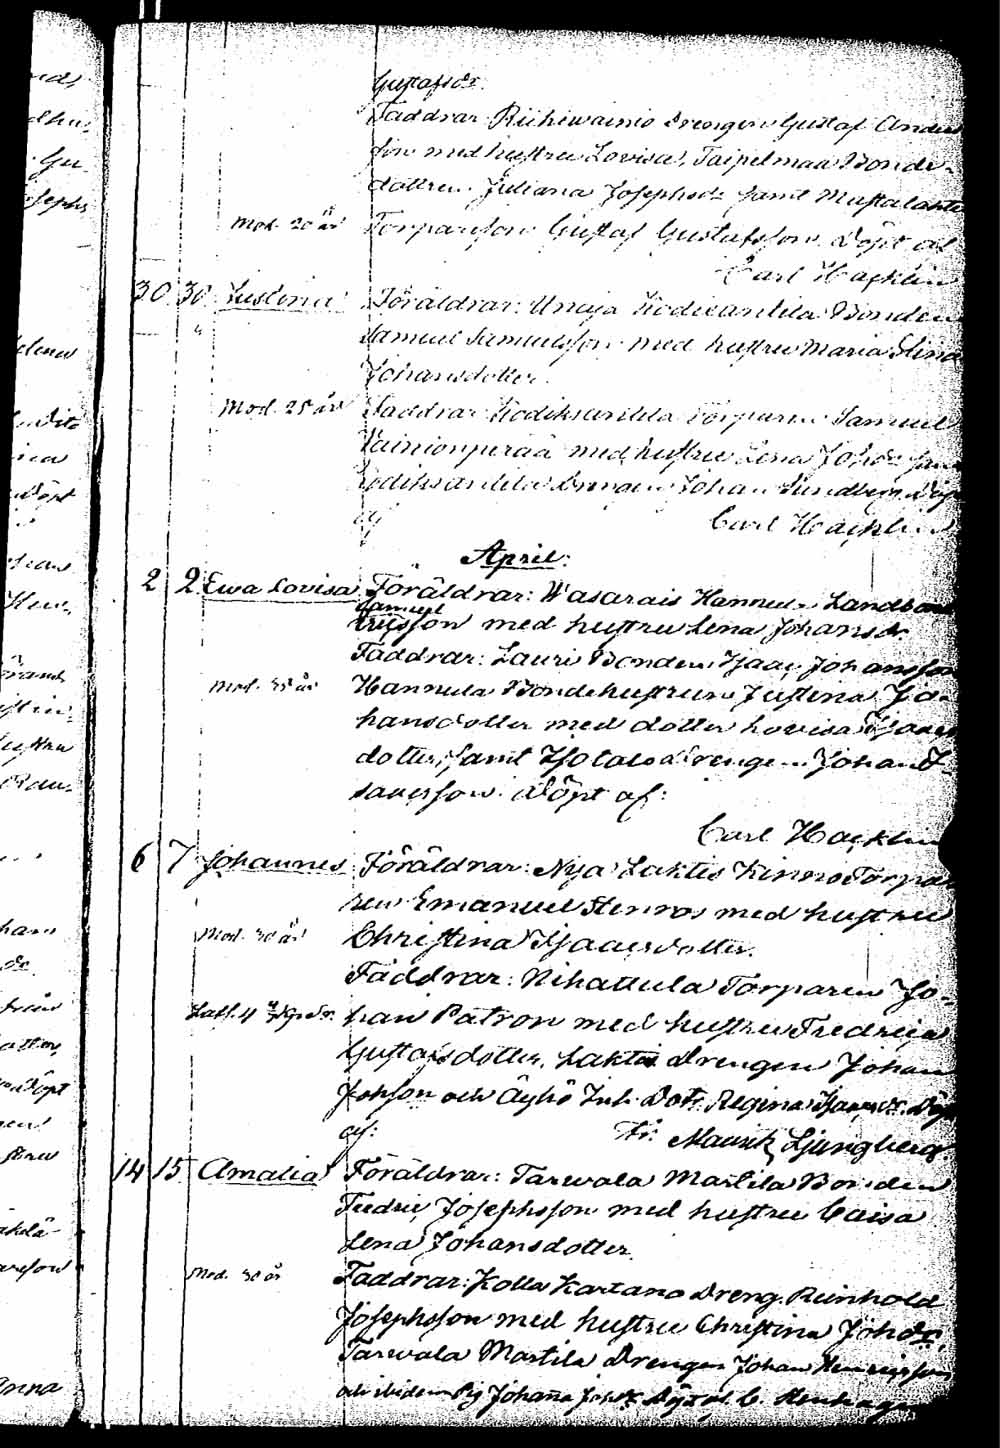 Gustafsdr.
Faddrar: Riihiwainio Drengen Gustaf Anders
son med hustru Lovisa, Taipelmaa Bonde-
dottren Juliana Josephsdr samt Mustalahti
Mod. 20 år Torpareson Gustaf Gustafsson. Döpt af
Carl Hacklin
30 30 Justina Föräldrar: Unaja Kodiksantila Bonden
Samuel Samuelsson med hustru Maria Stina
Johansdotter.
Mod. 25 år Faddrar: Kodiksantila Torparen Samuel
Vainionperää med hustru Lena Johsdr samt
Kodiksantila Drengen Johan Sundberg. Döpt
af Carl Hacklin
April:
2 2 Ewa Lovisa Föräldrar: Wasarais Hannula Landbonden
Samuel
Ericsson med hustru Lena Johansdr
Faddrar: Lauri Bonden Isaac Johansson
Mod. 35 år Hannula Bondehustrun Justina Jo-
hansdotter med dotter Lovisa Isaacs
dotter, samt Isotalo Drengen Johan I-
sacsson. Döpt af:
Carl Hacklin
6 7 Johannes Föräldrar: Nya Laktis Kinno Torpa-
ren Emanuel Stenros med hustru
Mod. 30 år Christina Isaacsdotter.
Faddrar: Nihattula Torparen Jo-
han Patron med hustru Fredrica
Gustafsdotter, Laktis Drengen Johan
Johsson och Äyhö Inh. Dotr Regina Isaacsdr. Döpt
af: Fr. Mauritz Ljungberg
14 15 Amalia Föräldrar: Tarwala Martila Bonden
Fredric Josephsson med hustru Caisa
Lena Johansdotter
Mod. 30 år Faddrar: Kolla Kartano Dreng. Reinhold
Josephsson med hustru Christina Johsdr,
Tarwala Martila Drengen Johan Henricsson
och ibidem Pig. Johanna Johsdr. Döpt af C.